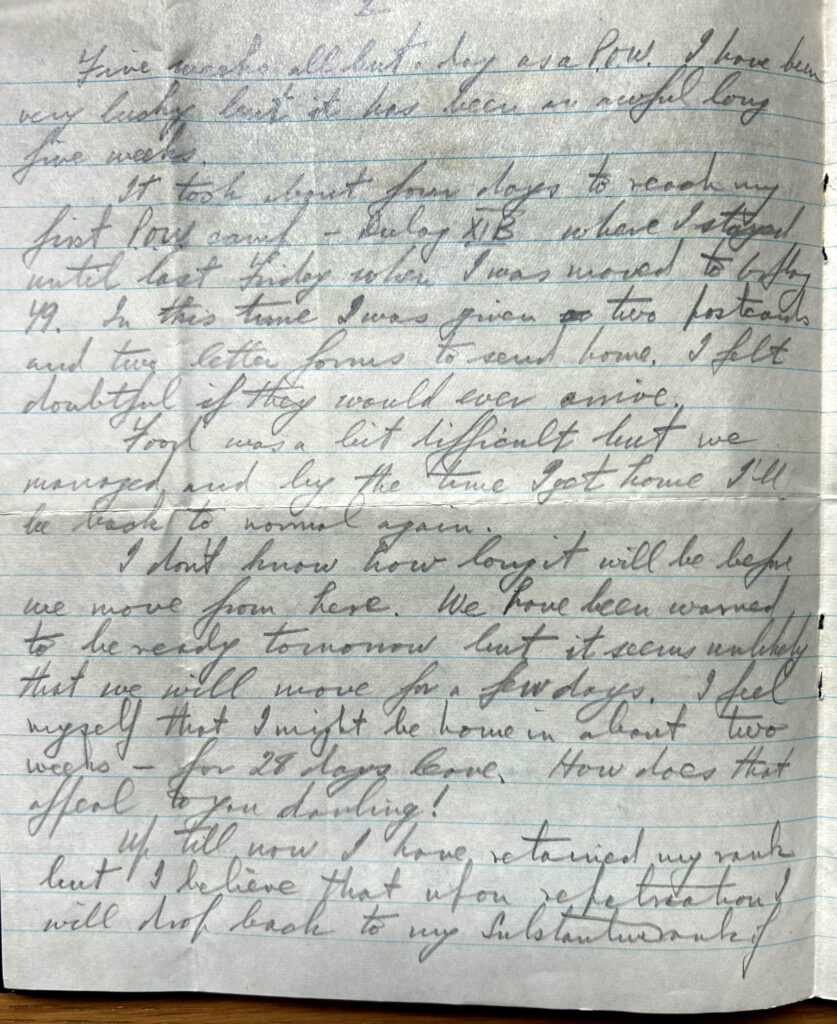 2
Five weeks all but a day as a POW. I have been
very lucky but it has been an awful long
five weeks.
It took about four days to reach my
first POW camp - Dulag XIB where I stayed
until last Friday when I was moved to Oflag
79. In this time I was given two postcards
and two letter forms to send home. I felt
doubtful if they would ever arrive.
Food was a bit difficult but we
managed and by the time I get home I'll
be back to normal again.
I don't know how long it will be before
we move from here. We have been warned
to be ready tomorrow but it seems unlikely
that we will move for a few days. I feel
myself that I might be home in about two
weeks - for 28 days leave. How does that
appeal to you darling!
Up till now I have retained my rank
but I believe that upon repatriation I
will drop back to my substantive rank if